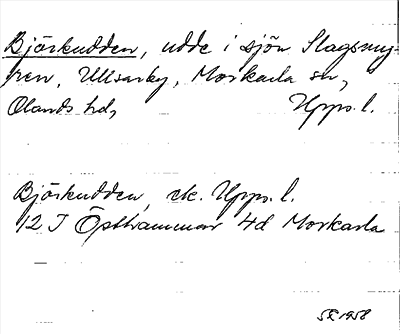 Björkudden, udde i sjön Slagsmy-
ren, Ullsarby, Morkarla sn,
Olands hd, Upps. l.
Björkudden, ek. Upps. l.
12 I Östhammar 4d Morkarla